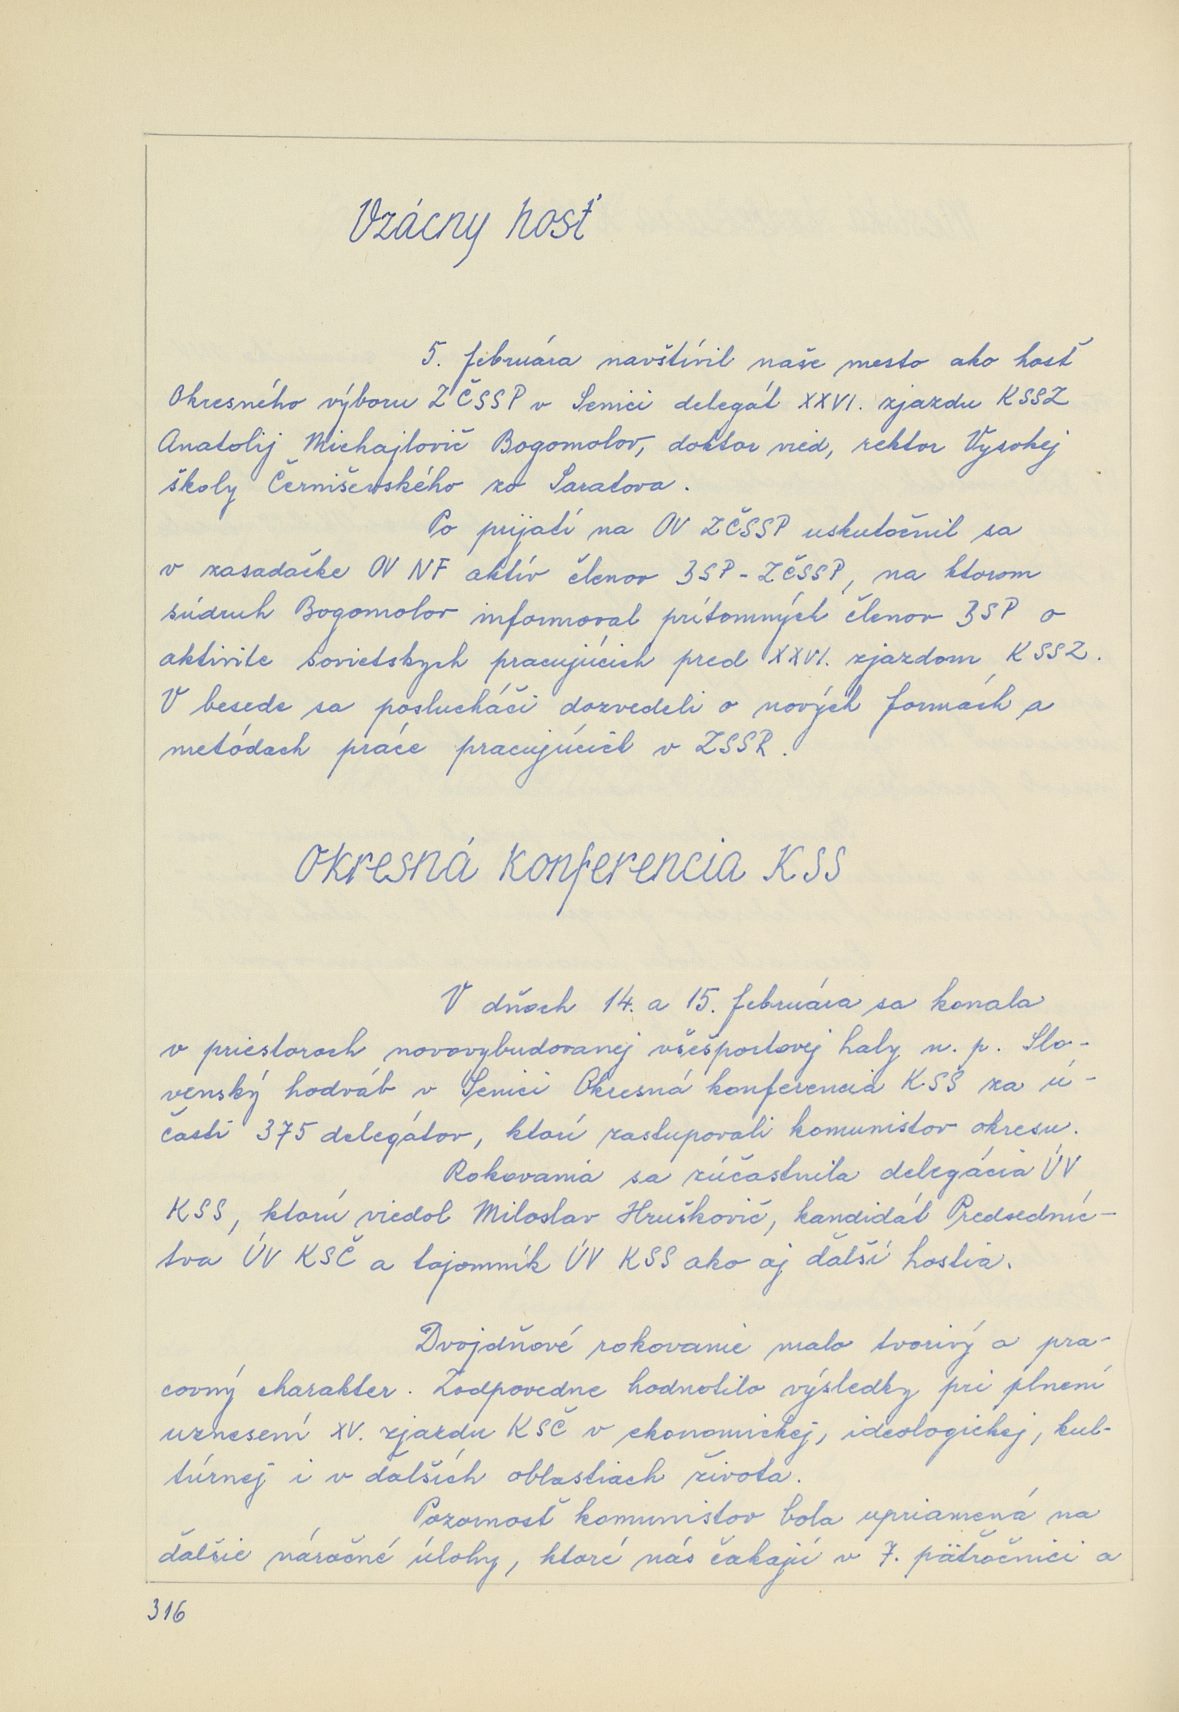 Vzácny hosť
5. februára navštívil naše mesto ako hosť
Okresného výboru ZČSSP v Senici delegát XXVI. zjazdu KSSZ
Anatolij Michajlovič Bogomolov, doktor vied, rektor Vysokej
školy Černiševského zo Saratova.
Po prijatí na OV ZČSSP uskutočnil sa
v zasadačke OV NF aktív členov BSP - ZČSSP, na ktorom
súdruh Bogomolov informoval prítomných členov BSP o
aktivite sovietskych pracujúcich pred XXVI. zjazdom KSSZ.
V besede sa poslucháči dozvedeli o nových formách a
metódach práce pracujúcich v ZSSR.
Okresná konferencia KSS
V dňoch 14. a 15. februára sa konala
v priestoroch novovybudovanej všešportovej haly n. p. Slo-
venský hodváb v Senici Okresná konferencia KSS za ú-
časti 375 delegátov, ktorí zastupovali komunistov okresu.
Rokovania sa zúčastnila delegácia ÚV
KSS, ktorú viedol Miloslav Hruškovič, kandidát Predsedníc-
tva ÚV KSČ a tajomník ÚV KSS ako aj ďalší hostia.
Dvojdňové rokovanie malo tvorivý a pra-
covný charakter. Zodpovedne hodnotilo výsledky pri plnení
uznesení XV. zjazdu KSČ v ekonomickej, ideologickej, kul-
túrnej i v ďalších oblastiach života.
Pozornosť komunistov bola upriamená na
ďalšie náročné úlohy, ktoré nás čakajú v 7. päťročnici a
316